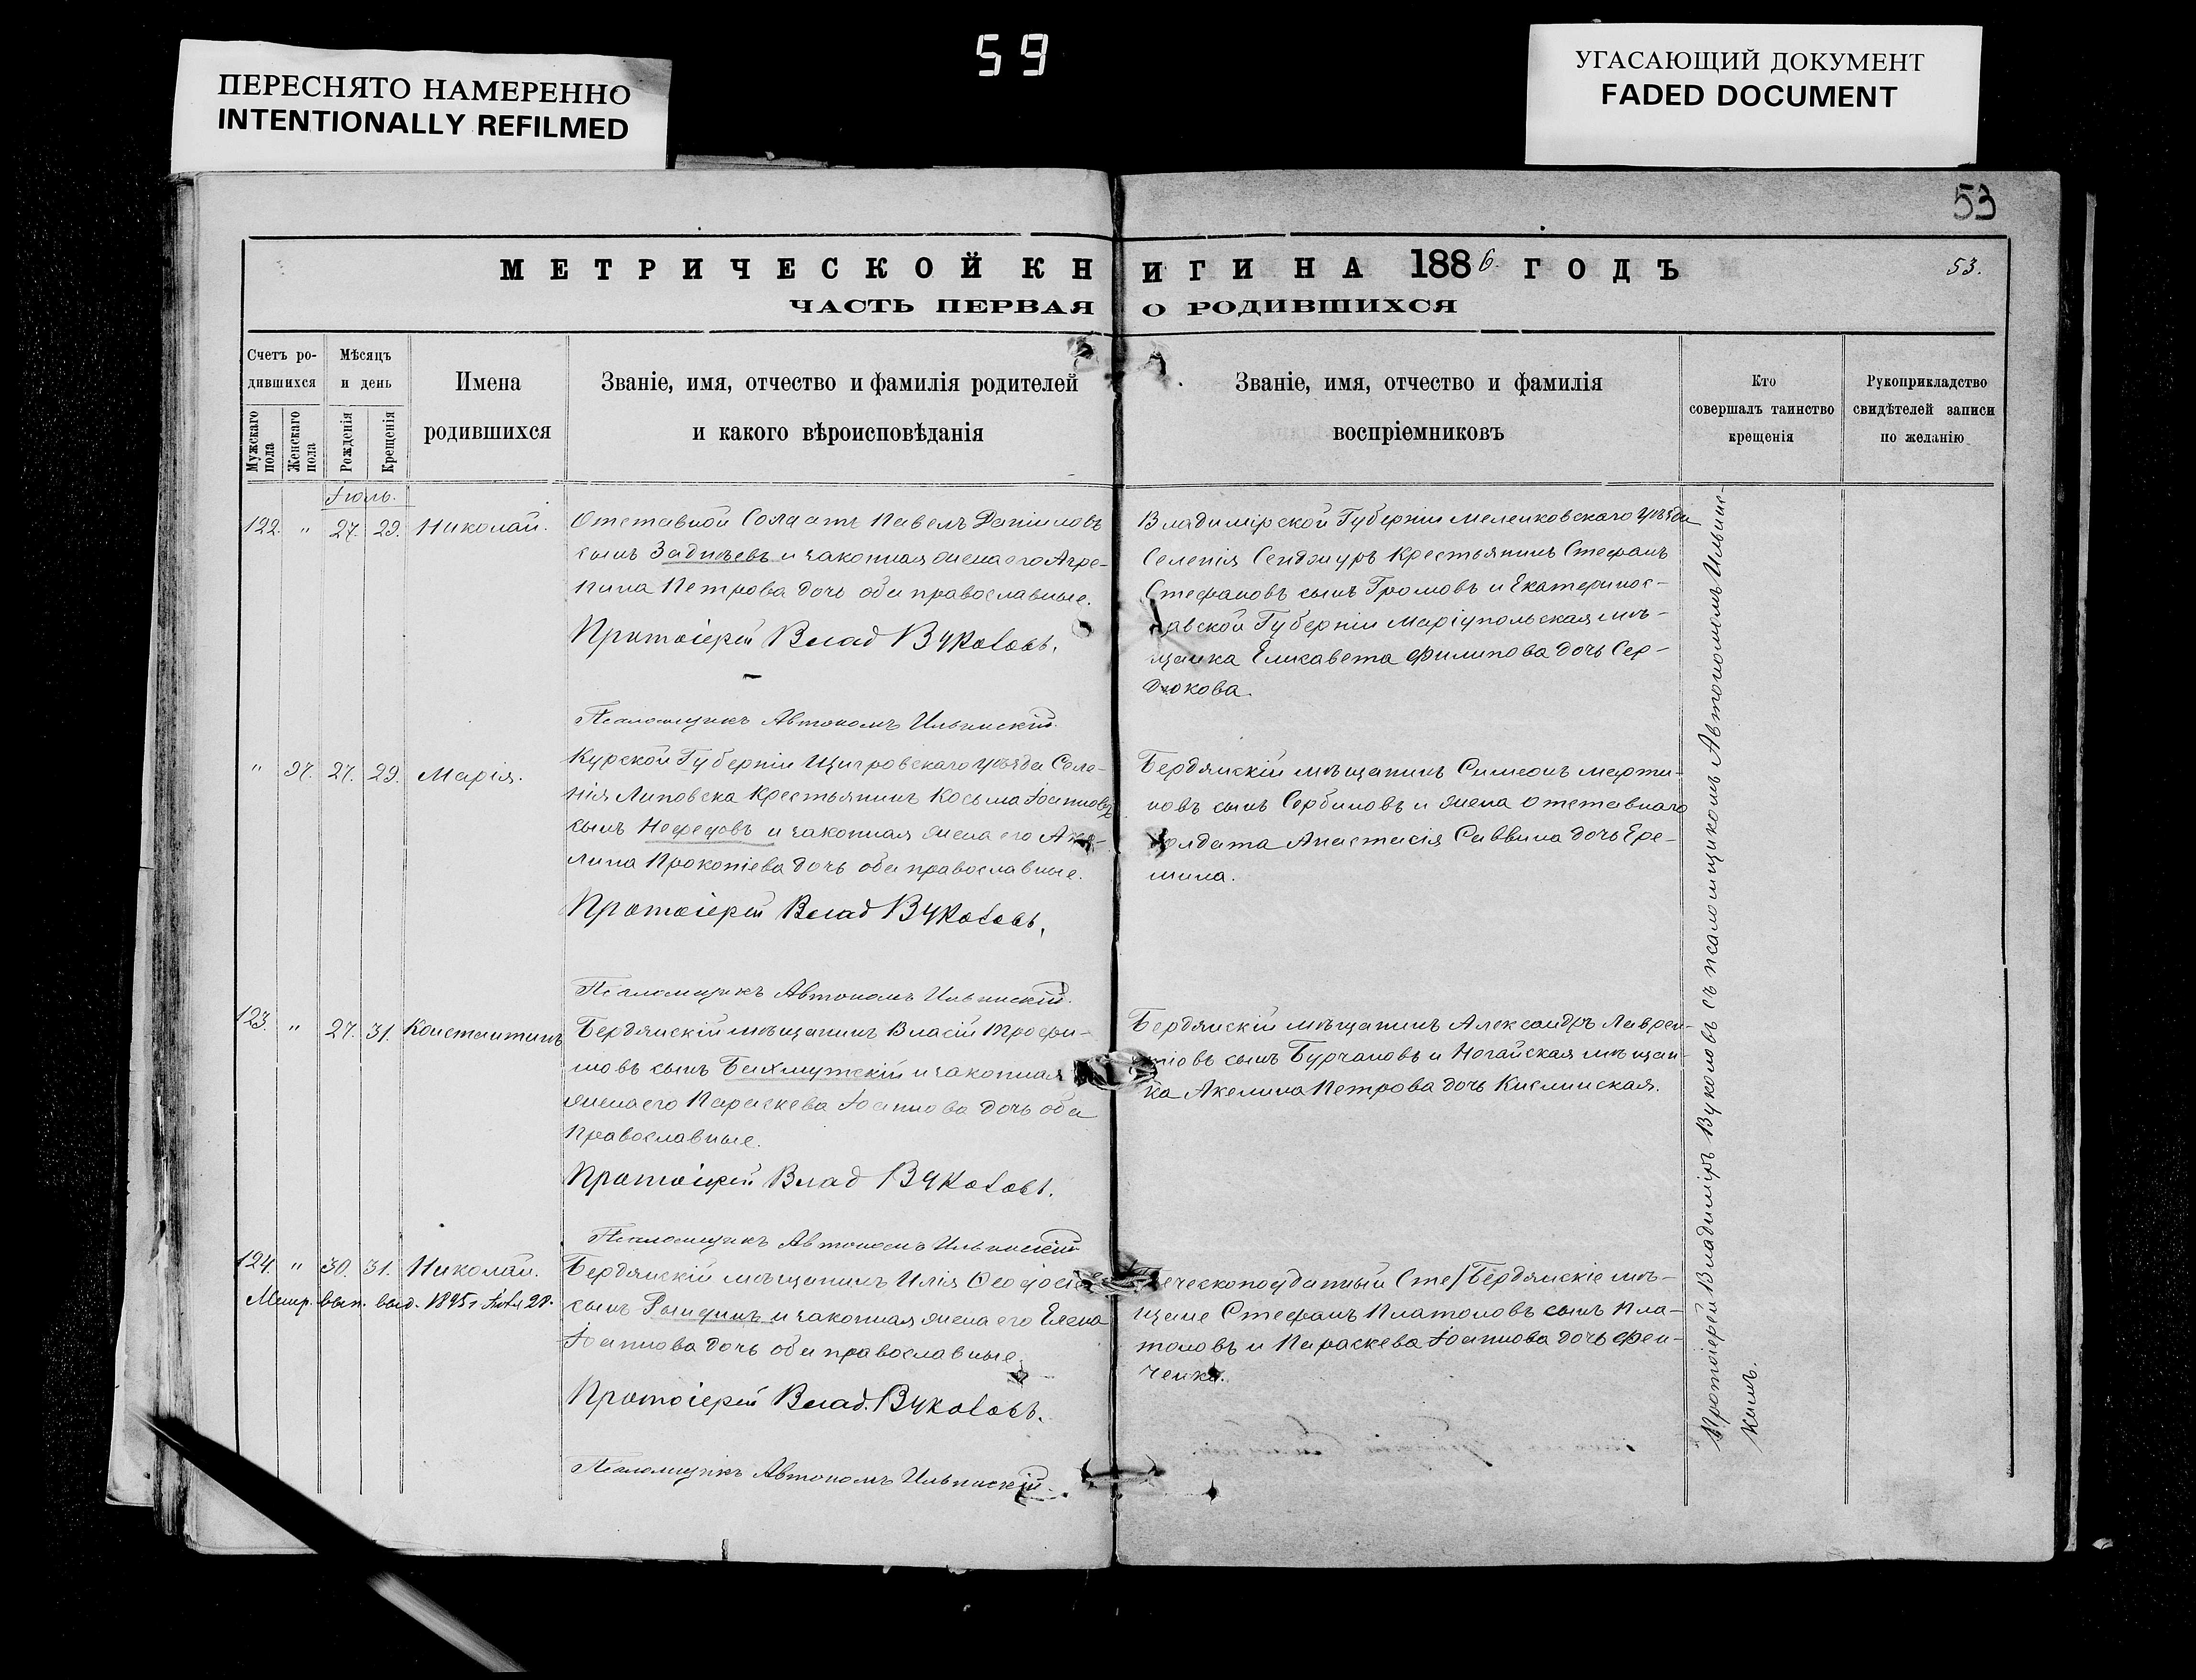 59
ПЕРЕСНЯТО НАМЕРЕННО
INTENTIONALLY REFILMED
УГАСАЮЩИЙ ДОКУМЕНТ
FADED DOCUMENT
53
МЕТРИЧЕСКОЙ КНИГИ НА 1886 ГОДЪ
53.
ЧАСТЬ ПЕРВАЯ О РОДИВШИХСЯ
Счетъ ро-
дившихся
Мужскаго пола
Женскаго пола
Мѣсяцъ
и день
Рожденія
Крещенія
Имена
родившихся
Званіе, имя, отчество и фамилія родителей
и какого вѣроисповѣданія
Званіе, имя, отчество и фамилія
воспріемниковъ
Кто
совершалъ таинство
крещенія
Рукоприкладство
свидѣтелей записи
по желанію
Іюль.
122. " 27. 29. Николай.
Отставной Солдатъ Павелъ Даніиловъ
сынъ и законная жена его Агре-
пина Петрова дочь оба православные.
Протоіерей Влад Вуколовъ.
Псаломщикъ Автономъ Ильинскій.
Владимірской Губерніи Меленковскаго уѣзда
Селенія Крестьянинъ Стефанъ
Стефановъ сынъ Громовъ и Екатеринос-
лавской Губерніи Маріупольская мѣ-
щанка Елисавета Филипова дочь Сер-
дюкова.
" 97. 27. 29. Марія.
Курской Губерніи Щигровскаго уѣзда Селе-
нія Липовска Крестьянинъ Косьма Іоанновъ
сынъ Нефедовъ и законная жена его Аку-
лина Прокопіева дочь оба православные.
Протоіерей Влад Вуколовъ.
Псаломщикъ Автономъ Ильинскій.
Бердянскій мѣщанинъ Симеонъ Марти-
новъ сынъ Сербиновъ и жена отставнаго
солдата Анастасія Саввина дочь Ере-
мина.
123. " 27. 31. Константинъ
Бердянскій мѣщанинъ Власій Трофи-
мовъ сынъ Бахмутскій и законная
жена его Параскева Іоаннова дочь оба
православные.
Протоіерей Влад Вуколовъ.
Псаломщикъ Автономъ Ильинскій
Бердянскій мѣщанинъ Александръ Лаврен-
тіовъ сынъ Бурчановъ и Ногайская мѣщан-
ка Акелина Петрова дочь Кислинская.
124. " 30. 31. Николай.
Метр. вып. выд. 1895 г.
Бердянскій мѣщанинъ Илія Ѳеодосіевъ
сынъ и законная жена его Елена
Іоаннова дочь оба православные.
Протоіерей Влад. Вуколовъ.
Псаломщикъ Автономъ Ильинскій.
Греческоподданный Сте/Бердянскіе мѣ-
щане Стефанъ Платоновъ сынъ Пла-
тоновъ и Параскева Іоаннова дочь Фен-
ченко.
Протоіерей Владиміръ Вуколовъ съ псаломщикомъ Автономомъ Ильинс-
кимъ.